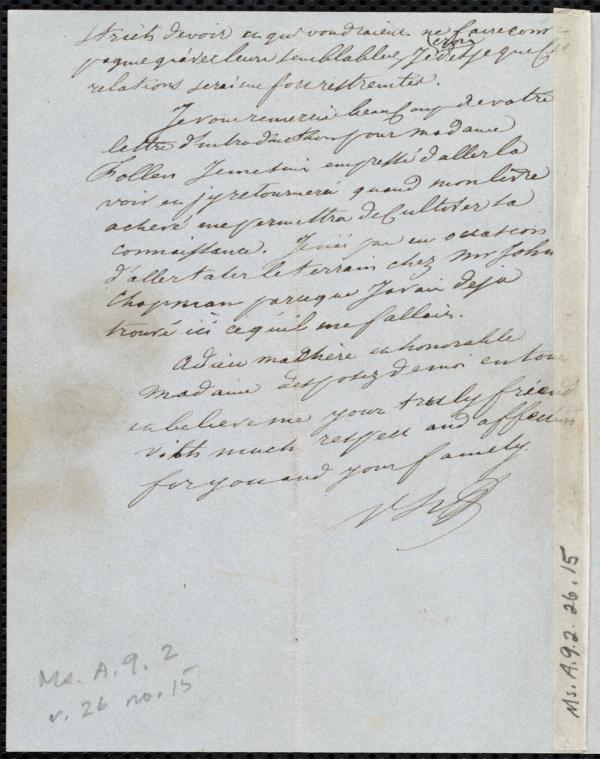 stricts devoir en qui voudraient ne faire com
pagnie qu'avec leurs semblables, Je crois que Ces
relations seraient fort restreintes
Je vous remercie beaucoup de votre
lettre d'introduction pour madame
Follen Je me suis empressé d'aller la
voir en j'y retournerai quand mon livre
achevé me permettra de Cultiver sa
connaissance. Je n'ai pas eu occasion
d'aller tater le terrain chez Mr John
Chapman parceque J'avais deja
trouvé ici ce qu'il me fallait.
Adieu ma chère en honorable
Madame disposez de moi en tout
en believe me your truly friend
with much respect and affection
for you and your family
Ms. A.9.2
v. 26 no. 15
Ms. A.9.2.26.15